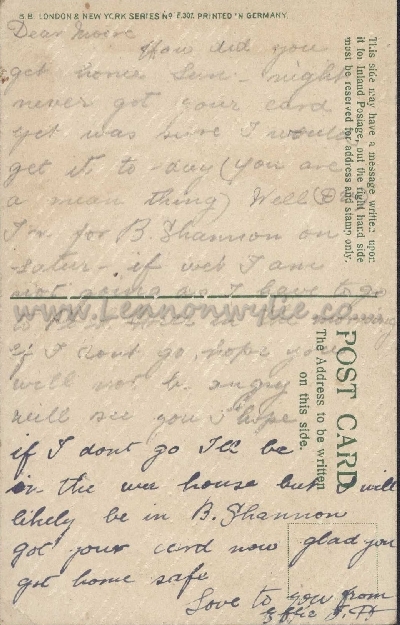 S.B. LONDON & NEW YORK SERIES No E.307. PRINTED IN GERMANY.
Dear
How did you
get home Sun- night
never got your card
yet was sure I would
get it to-day (you are
a mean thing) Well D
I'm for B. Shannon on
-Satur- if wet I am
not going as I have to go
to in the morning
if I dont go, hope you
will not be angry
will see you I hope
if I dont go I'll be
in the wee house but will
likely be in B. Shannon
got your card now glad you
got home safe
Love to you from
Effie
This side may have a message written upon
it for Inland Postage, but the right hand side
must be reserved for address and stamp only.
POST CARD
The Address to be written
on this side.
www.Lennonwylie.co